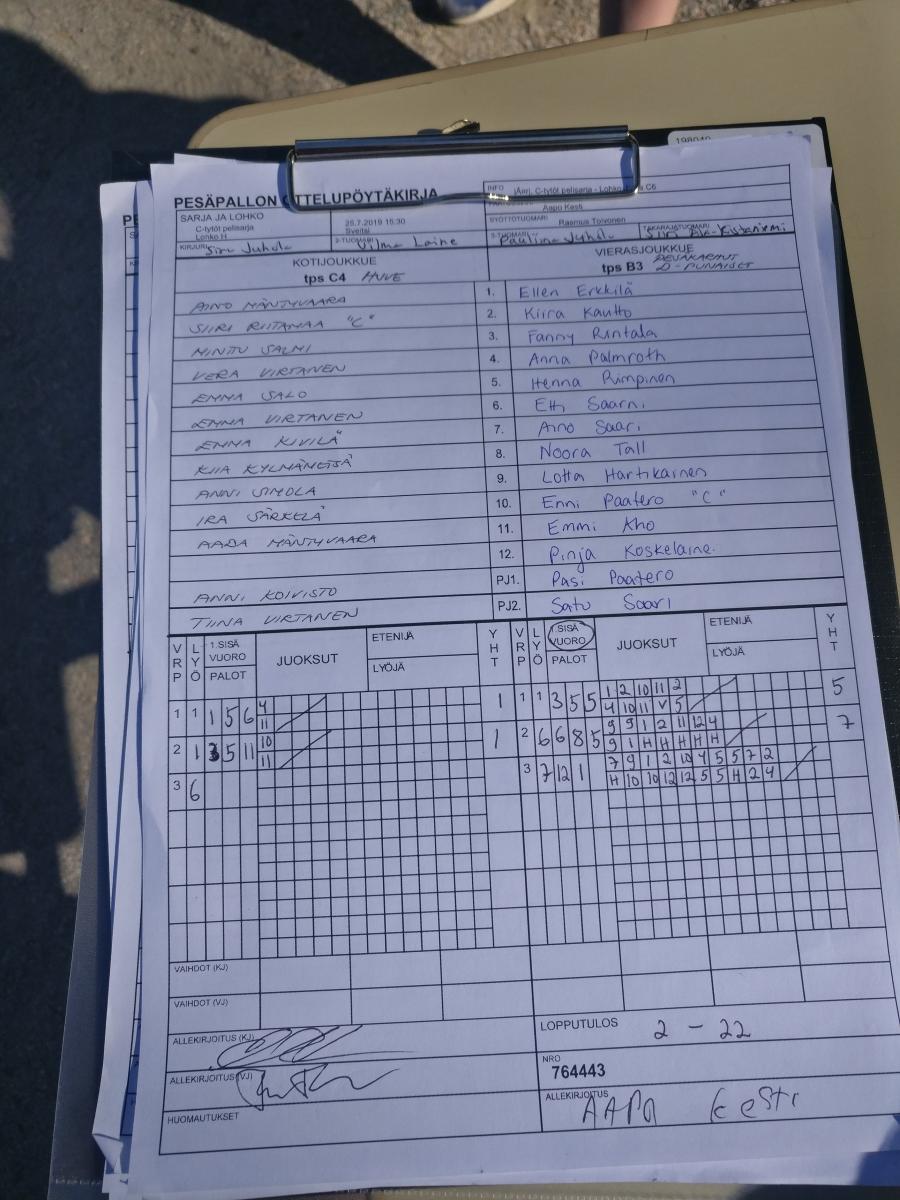 198040
PESÄPALLON OTTELUPÖYTÄKIRJA
INFO jÄArj. C-tytöt pelisarja - Lohko C6
SARJA JA LOHKO
C-tytöt pelisarja
Lohko H
26.7.2019 15:30
Sveitsi
Aapo Kesti
SYÖTTÖTUOMARI Rasmus Toivonen
KIRJURI Siru Juhola
2-TUOMARI Vilma Laine
3-TUOMARI Pauliina Juhola
TAKARAJATUOMARI
KOTIJOUKKUE
tps C4 HUVE
VIERASJOUKKUE
tps B3 PESÄKARHUT
D-PUNAISET
AINO MÄNTYVAARA 1. Ellen Erkkilä
SIIRI RIITAMAA "C" 2. Kiira Kautto
MINTU SALMI 3. Fanny Rintala
VERA VIRTANEN 4. Anna Palmroth
EMMA SALO 5. Henna Rimpinen
EMMA VIRTANEN 6. Etti Saarni
EMMA KIVILÄ 7. Aino Saari
KIIA KYLMÄNETSÄ 8. Noora Tall
ANNI SIMOLA 9. Lotta Hartikainen
IRA SÄRKELÄ 10. Enni Paatero "C"
AADA MÄNTYVAARA 11. Emmi Aho
12. Pinja Koskelaine
ANNI KOIVISTO PJ1. Pasi Paatero
TIINA VIRTANEN PJ2. Satu Saari
VRP LYÖ 1.SISÄ VUORO PALOT JUOKSUT ETENIJÄ LYÖJÄ YHT VRP LYÖ 1.SISÄ VUORO PALOT JUOKSUT ETENIJÄ LYÖJÄ YHT
1 1 1 5 6 4 1 1 1 3 5 5 1 2 10 11 2 5
11 4 10 11 V 5
2 1 3 5 11 10 1 2 6 6 8 5 9 9 1 2 11 12 4 7
11 9 1 H H H H H
3 6 3 7 12 1 7 9 1 2 10 4 5 5 7 2
H 10 10 12 12 5 5 H 2 4
VAIHDOT (KJ)
VAIHDOT (VJ)
ALLEKIRJOITUS (KJ)
LOPPUTULOS 2 - 22
ALLEKIRJOITUS (VJ)
NRO
764443
HUOMAUTUKSET
ALLEKIRJOITUS AAPO KESTI